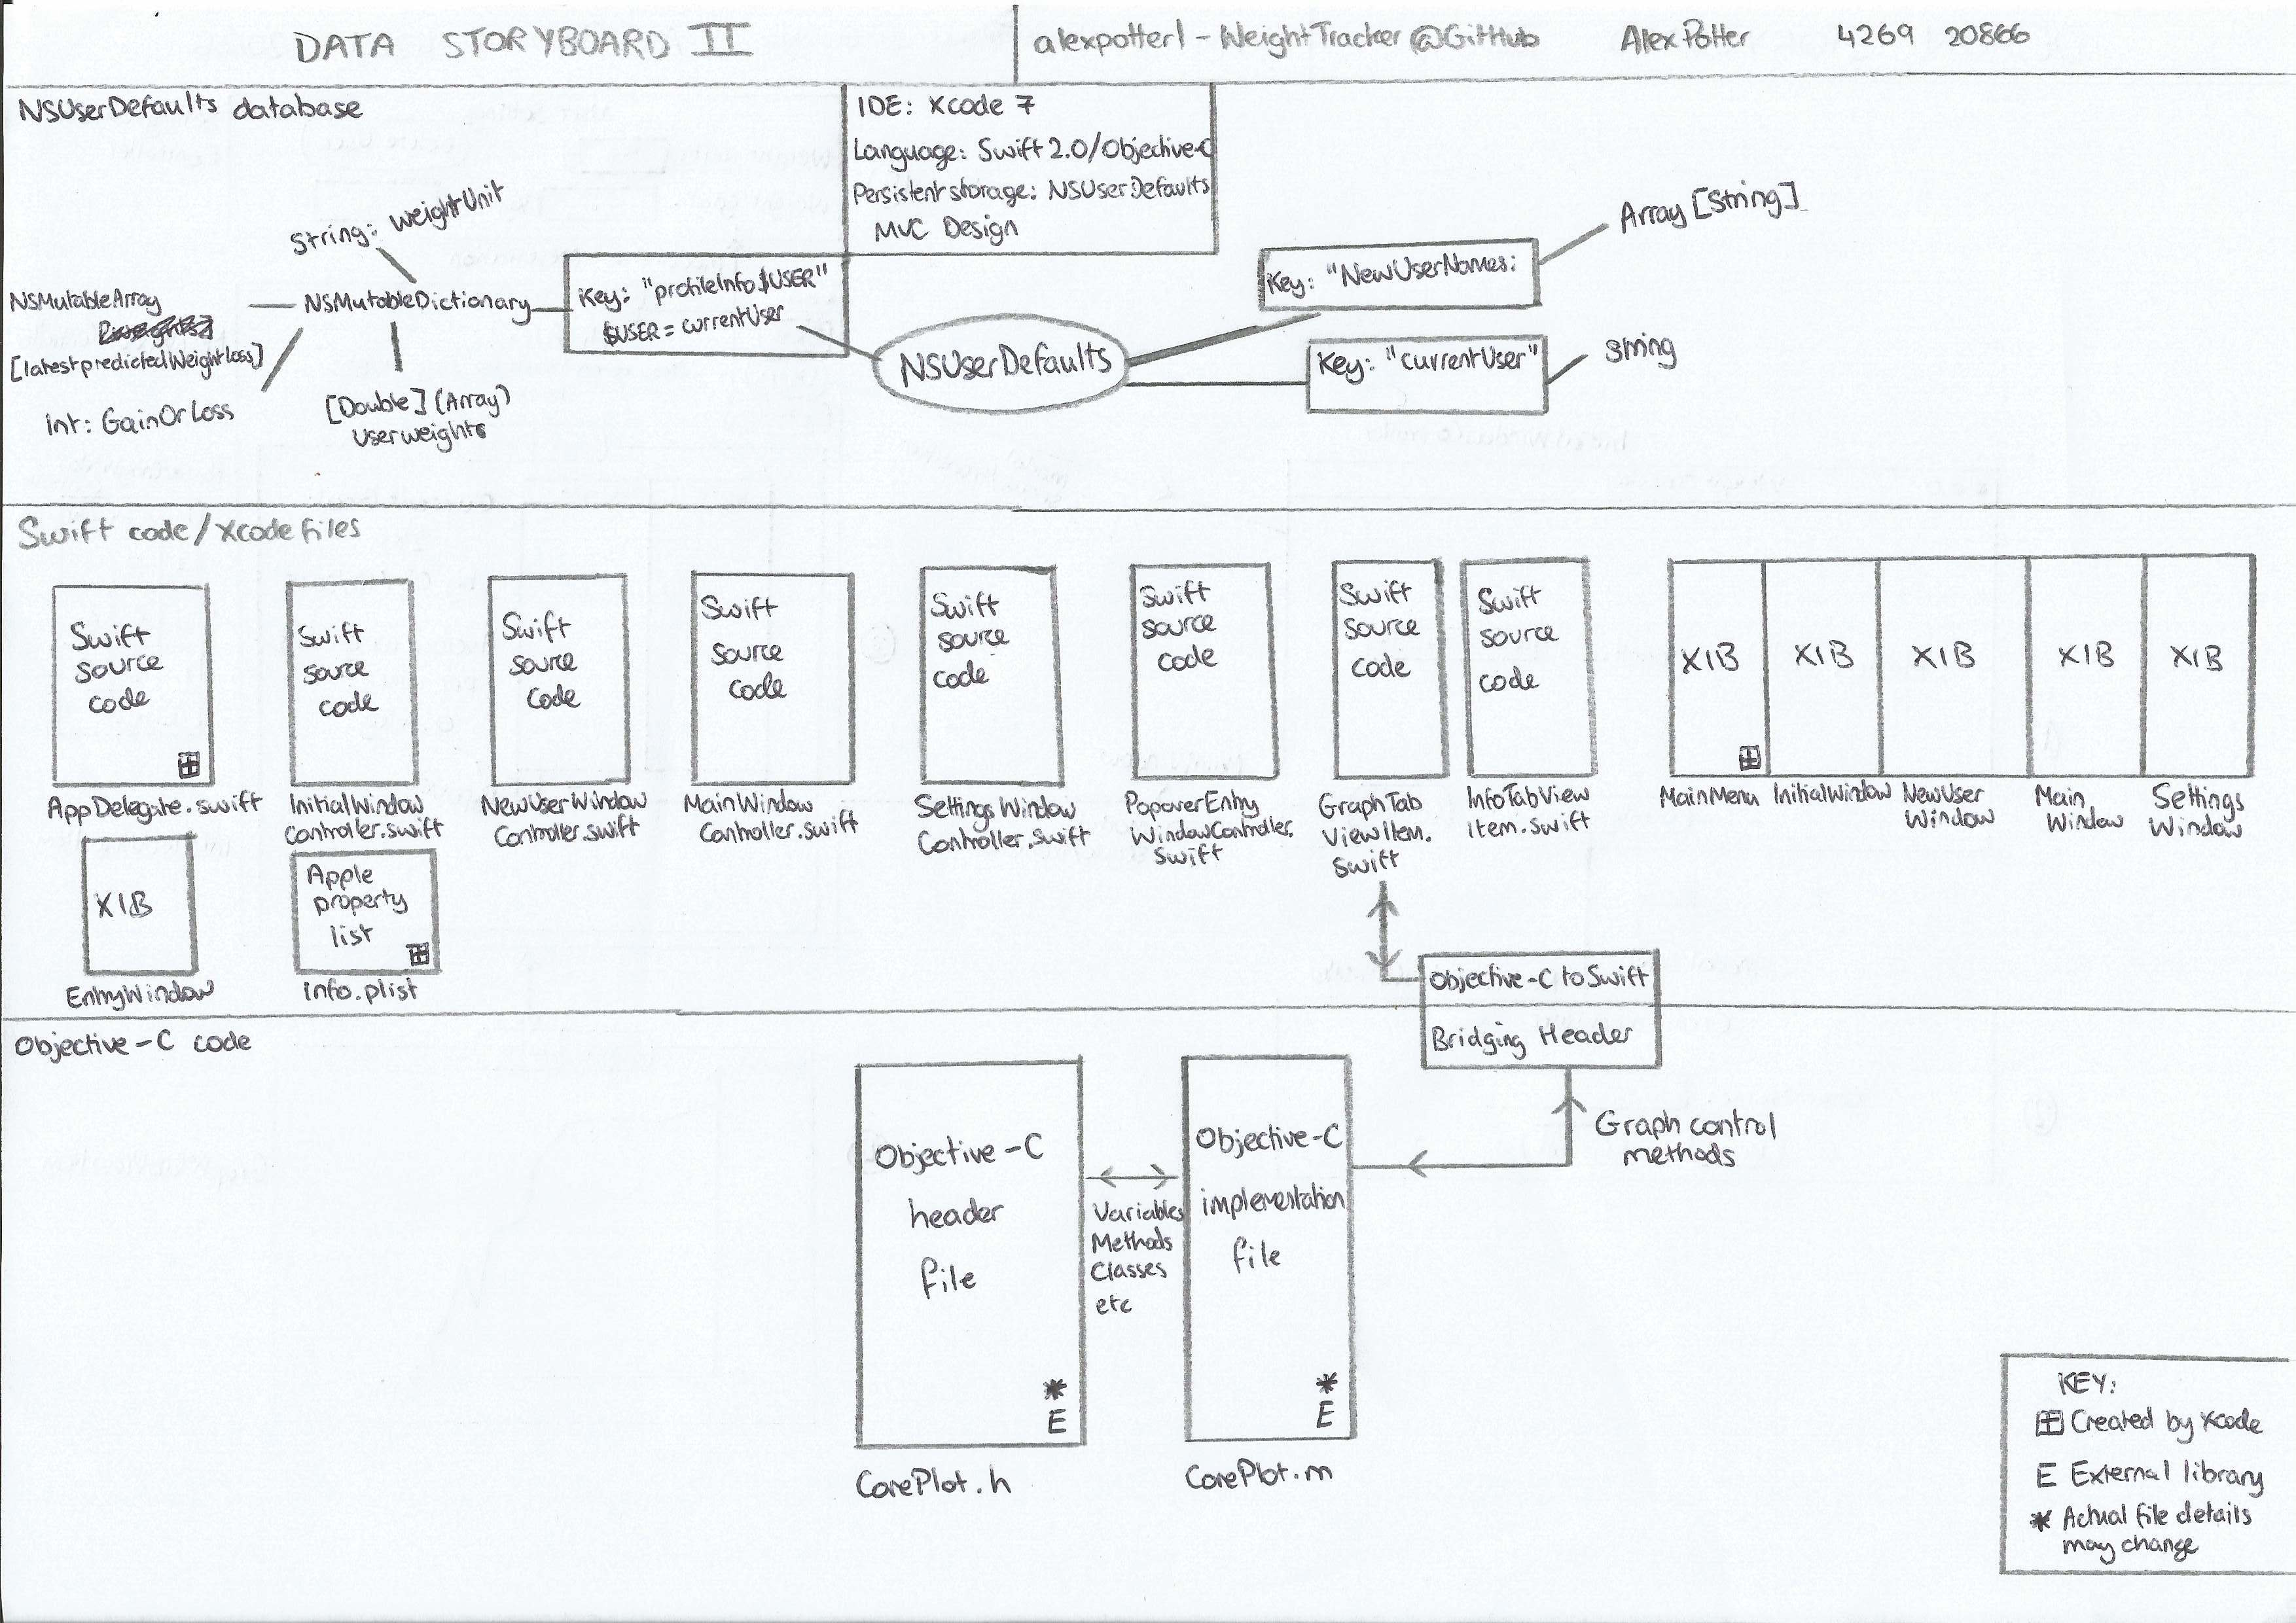 DATA STORYBOARD II
alexpotter1 - WeightTracker@GitHub Alex Potter 4269 20866
NSUserDefaults database
IDE: Xcode 7
Language: Swift 2.0/Objective-C
Persistent storage: NSUserDefaults
MVC Design
String: weightUnit
NSMutableArray
[latestpredictedWeightLoss]
NSMutableDictionary
Int: GainOrLoss
[Double] (Array)
userweights
Key: "profileInfo$USER"
$USER = currentUser
NSUserDefaults
Key: "NewUserNames:
Array [String]
Key: "currentUser"
String
Swift code/Xcode files
Swift
source
code
AppDelegate.swift
Swift
source
code
InitialWindow
Controller.swift
Swift
source
code
NewUserWindow
Controller.swift
Swift
source
code
MainWindow
Controller.swift
Swift
source
code
Settings Window
Controller.swift
Swift
source
code
PopoverEntry
WindowController.
swift
Swift
source
code
GraphTab
ViewItem.
swift
Swift
source
code
InfoTabView
Item.swift
XIB
MainMenu
XIB
InitialWindow
XIB
NewUser
Window
XIB
Main
Window
XIB
Settings
Window
XIB
EntryWindow
Apple
property
list
info.plist
Objective-C to Swift
Bridging Header
Objective-C code
Objective-C
header
file
*
E
CorePlot.h
Variables
Methods
Classes
etc
Objective-C
implementation
file
*
E
CorePlot.m
Graph control
methods
KEY:
Created by Xcode
E External library
* Actual file details
may change